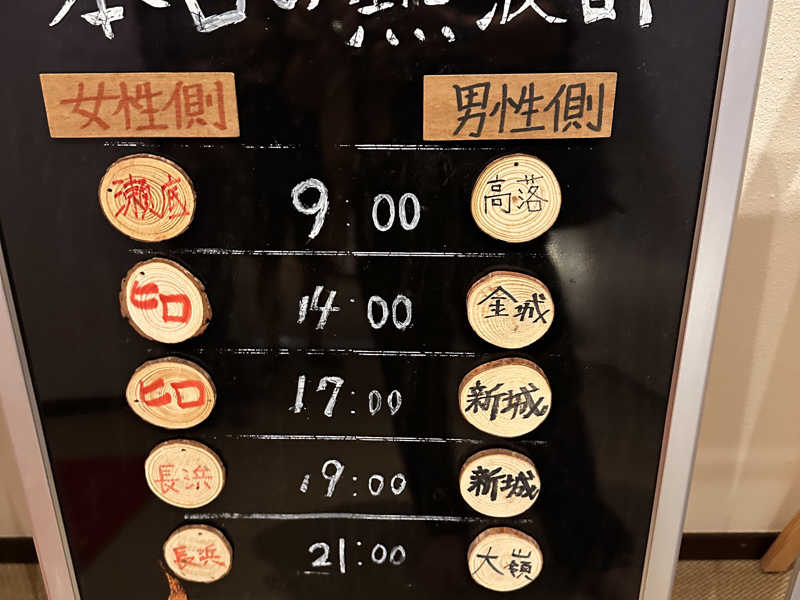 本日の熱波師
女性側 男性側
瀬底 9:00 高落
ヒロ 14:00 金城
ヒロ 17:00 新城
長浜 19:00 新城
長浜 21:00 大嶺